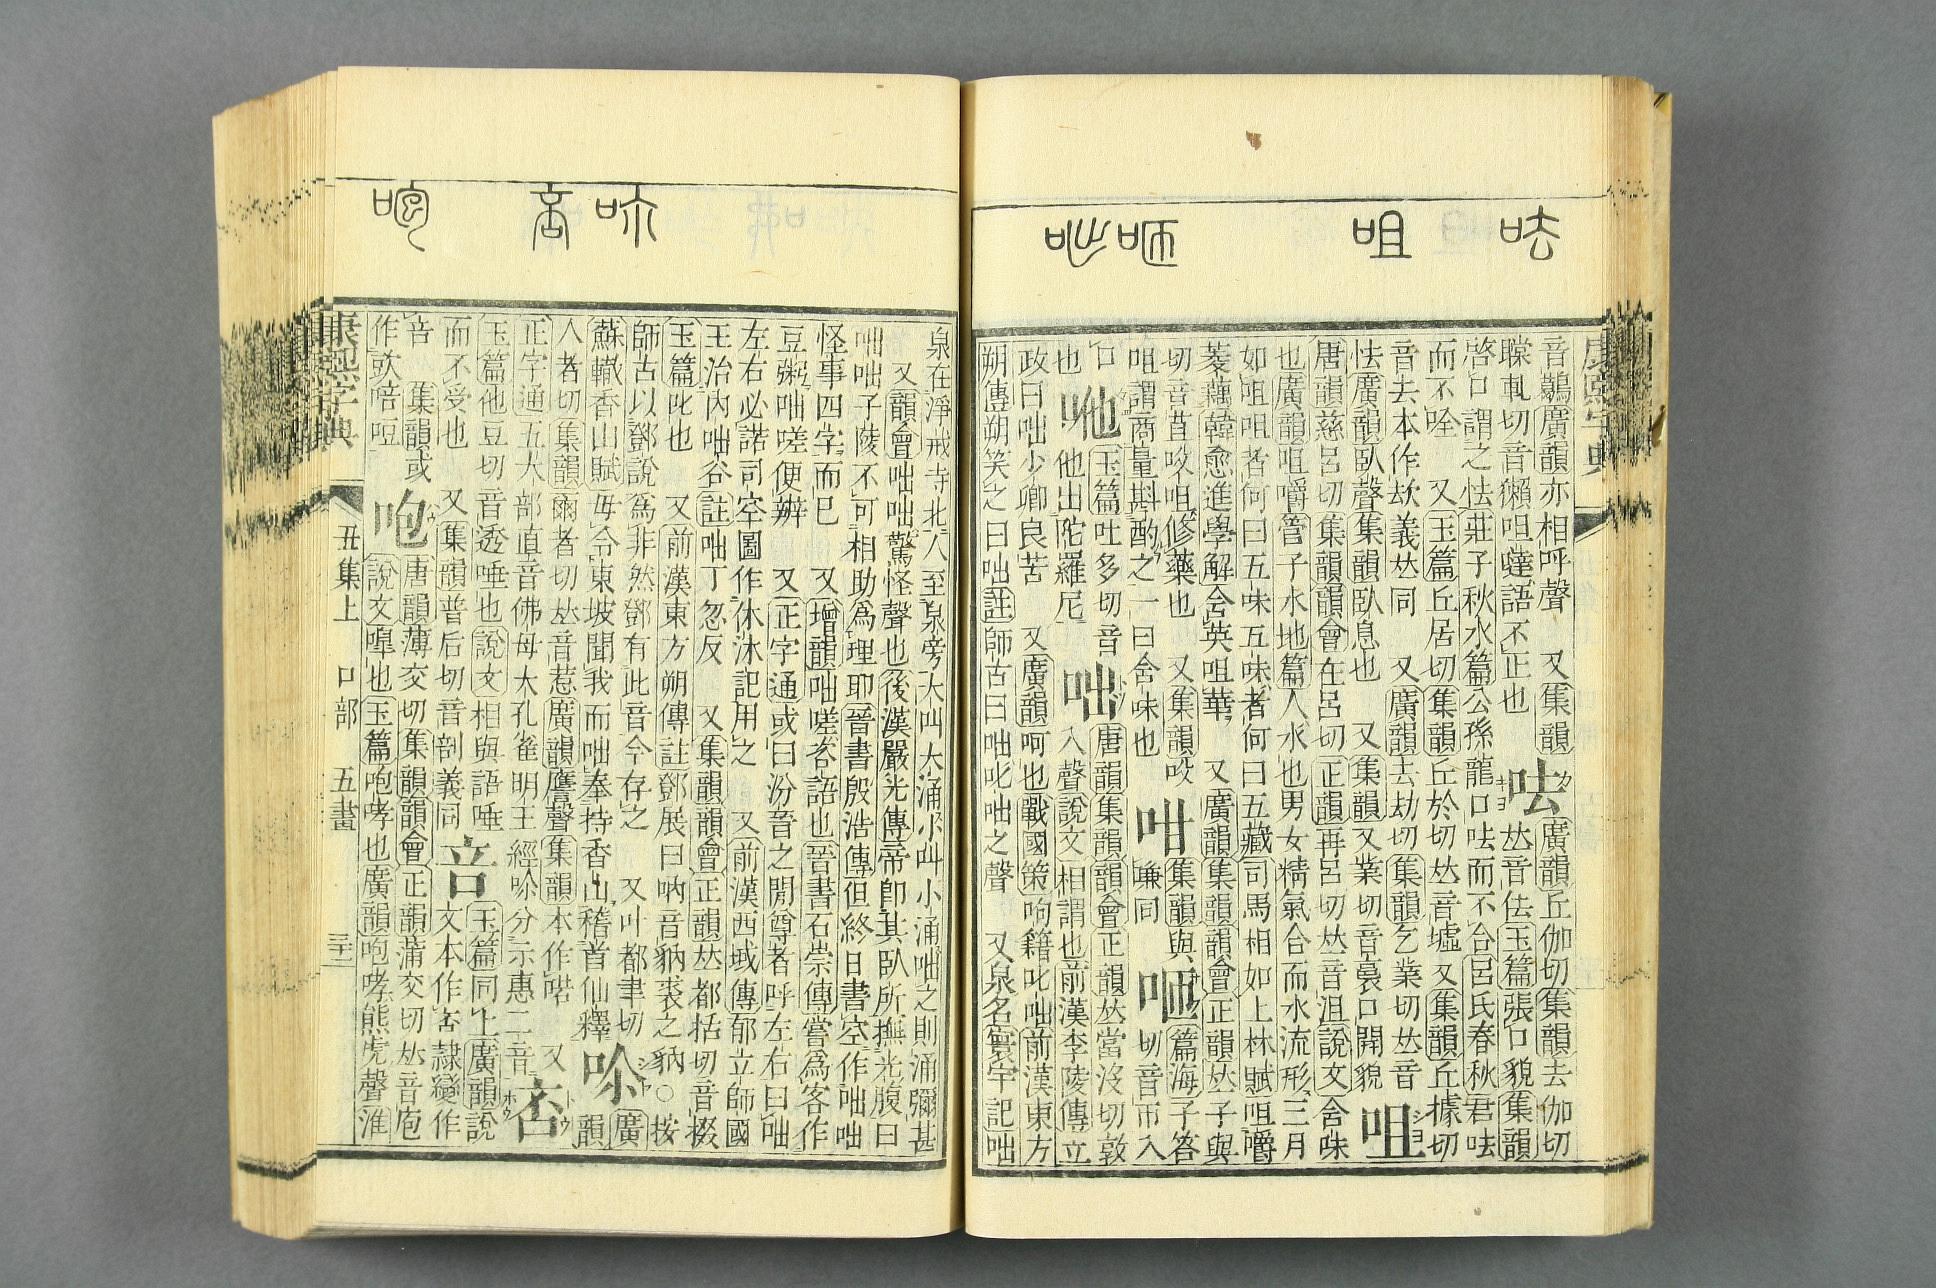 呿 咀 咂 咄
康熙字典
音鷊廣韻亦相呼聲 又集韻 呿 廣韻丘伽切集韻去伽切
軋切音獺呾噠語不正也 𠀤音佉玉篇張口貌集韻
啓口謂之怯莊子秋水篇公孫龍口呿而不合呂氏春秋君呿
而不唫 又玉篇丘居切集韻丘於切𠀤音墟又集韻丘據切
音去本作㰦義𠀤同 又廣韻去劫切集韻乞業切𠀤音
怯廣韻臥聲集韻臥息也 又集韻又業切音㬪口開貌 咀 ジヨ
唐韻慈呂切集韻韻會在呂切正韻再呂切𠀤音沮說文含味
也廣韻咀嚼管子水地篇人水也男女精氣合而水流形三月
如咀咀者何曰五味五味者何曰五藏司馬相如上林賦咀嚼
菱藕韓愈進學解含英咀華 又廣韻集韻韻會正韻𠀤子與
切音苴㕮咀修藥也 又集韻㕮 咁 集韻與 咂 篇海子答
咀謂商量斟酌之一曰含味也 嗛同 切音帀入
口 咃 玉篇吐多切音 咄 唐韻集韻韻會正韻𠀤當沒切敦
也 他出陀羅尼 入聲說文相謂也前漢李陵傳立
政曰咄少卿良苦 又廣韻呵也戰國策呴籍叱咄前漢東方
朔傳朔笑之曰咄註師古曰咄叱咄之聲 又泉名寰宇記咄
咆
泉在淨戒寺北人至泉旁大叫大涌小叫小涌咄之則涌彌甚
又韻會咄咄驚怪聲也後漢嚴光傳帝卽其臥所撫光腹曰
咄咄子陵不可相助爲理耶晉書殷浩傳但終日書空作咄咄
怪事四字而已 又增韻咄嗟咨語也晉書石崇傳嘗爲客作
豆粥咄嗟便辦 又正字通或曰汾晉之閒尊者呼左右曰咄
左右必諾司空圖作休沐記用之 又前漢西域傳郁立師國
王治內咄谷註咄丁忽反 又集韻韻會正韻𠀤都括切音掇
玉篇叱也 又前漢東方朔傳註鄧展曰吶音豽裘之豽○按
師古以鄧說爲非然鄧有此音今存之 又叶都聿切 廣
蘇轍香山賦毋令東坡聞我而咄奉持香山稽首仙釋 韻
人者切集韻爾者切𠀤音惹廣韻譍聲集韻本作喏 又
正字通五大部直音佛母大孔雀明王經㖿分示惠二音 咅 ホウ トウ
玉篇他豆切音透唾也說文相與語唾 音 玉篇同上廣韻說
而不受也 又集韻普后切音剖義同 文本作㕻隷變作
咅 集韻或 咆 唐韻薄交切集韻韻會正韻蒲交切𠀤音庖
作㰴㖣哣 說文嘷也玉篇咆哮也廣韻咆哮熊虎聲淮
康熙字典 丑集上 口部 五畫